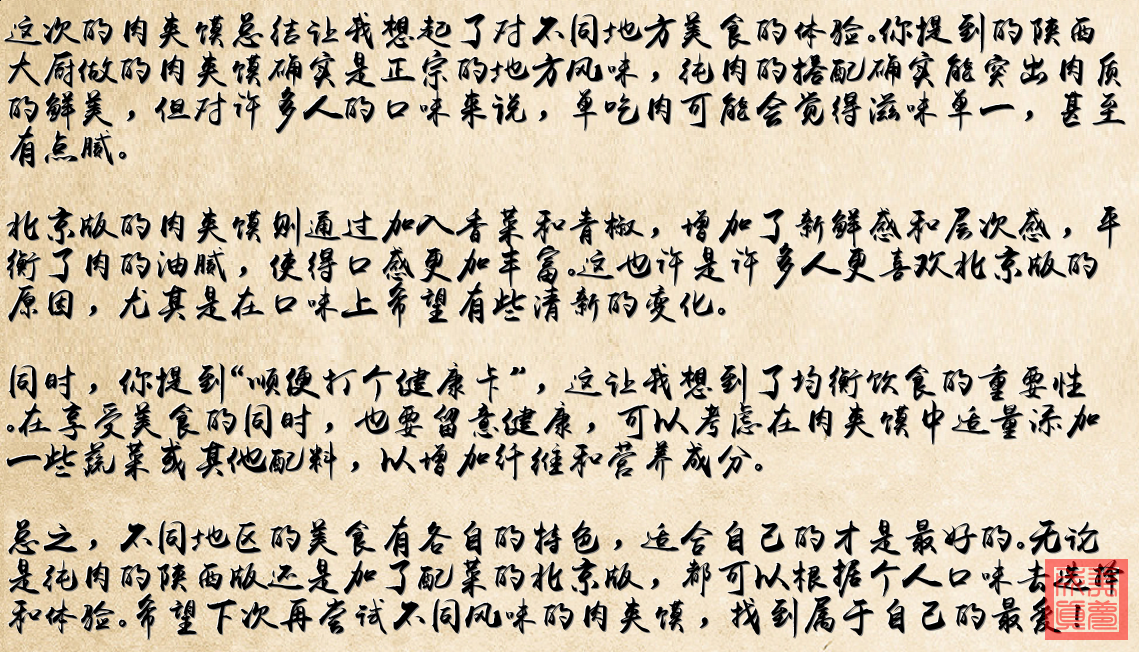 这次的肉夹馍总结让我想起了对不同地方美食的体验。你提到的陕西
大厨做的肉夹馍确实是正宗的地方风味，纯肉的搭配确实能突出肉质
的鲜美，但对许多人的口味来说，单吃肉可能会觉得滋味单一，甚至
有点腻。
北京版的肉夹馍则通过加入香菜和青椒，增加了新鲜感和层次感，平
衡了肉的油腻，使得口感更加丰富。这也许是许多人更喜欢北京版的
原因，尤其是在口味上希望有些清新的变化。
同时，你提到“顺便打个健康卡”，这让我想到了均衡饮食的重要性
。在享受美食的同时，也要留意健康，可以考虑在肉夹馍中适量添加
一些蔬菜或其他配料，以增加纤维和营养成分。
总之，不同地区的美食有各自的特色，适合自己的才是最好的。无论
是纯肉的陕西版还是加了配菜的北京版，都可以根据个人口味去选择
和体验。希望下次再尝试不同风味的肉夹馍，找到属于自己的最爱！